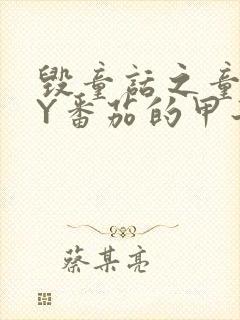 毁童话之童
Y番茄的甲
蔡某亮